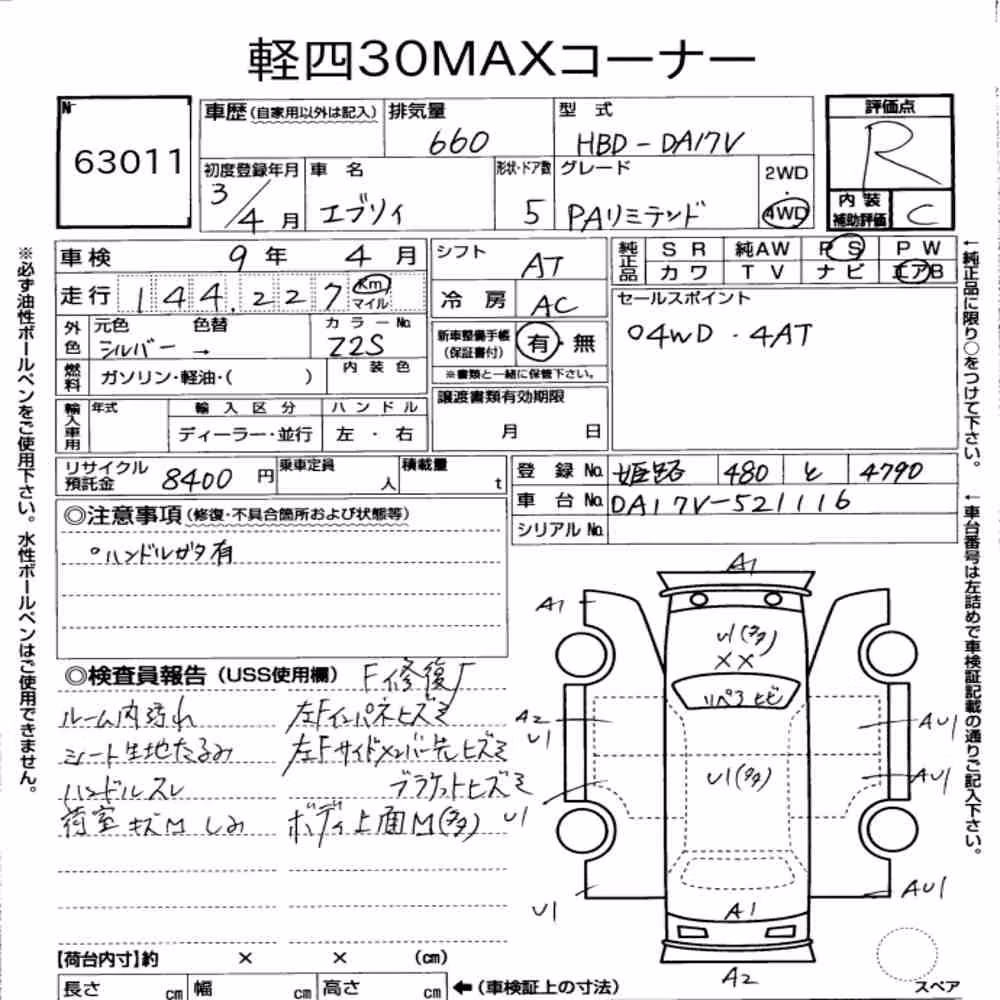 軽四30MAXコーナー
No 63011
車歴(自家用以外は記入) 排気量 660 型式 HBD-DA17V 評価点 R
初度登録年月 3/4月 車名 エブリイ 形状・ドア数 5 グレード PAリミテッド 2WD・4WD 内装補助評価 C
車検 9年 4月 シフト AT 純正品 SR 純AW PS PW
カワ TV ナビ エアB
走行 144,227 Km マイル 冷房 AC セールスポイント
○4WD・4AT
外色 元色 シルバー 色替 → カラーNo. Z2S 新車整備手帳(保証書付) 有・無
※書類と一緒に保管下さい。
燃料 ガソリン・軽油・( ) 内装色
譲渡書類有効期限 月 日
輸入車用 年式 輸入区分 ハンドル
ディーラー・並行 左・右
リサイクル預託金 8400円 乗車定員 人 積載量 t 登録No. 姫路 480 と 4790
車台No. DA17V-521116
シリアルNo.
◎注意事項(修復・不具合箇所および状態等)
°ハンドルガタ有
◎検査員報告(USS使用欄) F修復
ルーム内汚れ 左Fインパネヒズミ
シート生地たるみ 左Fサイドメンバー先ヒズミ
ハンドルスレ ブラケットヒズミ
荷室キズM しみ ボディ上面M(多)
A1
A1
U1(多)
XX
リペア ヒビ
A2
U1
AU1
U1(多)
AU1
U1
AU1
U1
A1
A2
スペア
【荷台内寸】約 × × (cm)
長さ cm 幅 cm 高さ cm ←(車検証上の寸法)
※必ず油性ボールペンをご使用下さい。水性ボールペンはご使用できません。
←純正品に限り○をつけて下さい。
←車台番号は左詰めで車検証記載の通りご記入下さい。